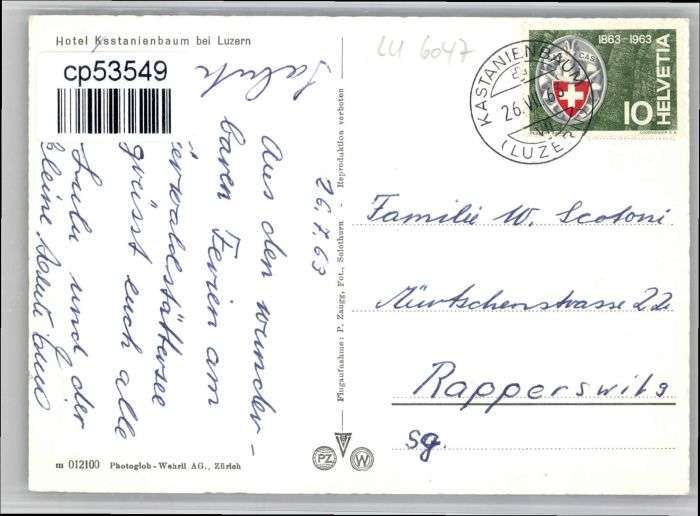 Hotel Kastanienbaum bei Luzern
cp53549
LU 6047
KASTANIENBAUM
(LUZERN)
26.VII.63
1863-1963
CAS
10
HELVETIA
COURVOISIER S.A.
Salute
26.7.63
Aus den wunder-
baren Ferien am
Vierwaldstättersee
grüsst euch alle
Lulu und der
kleine
Familie W. Scotoni
Mürtschenstrasse 22
Rapperswil
SG.
Flugaufnahme: P. Zaugg, Fot., Solothurn - Reproduktion verboten
m 012100 Photoglob-Wehrli AG., Zürich
PZ
W